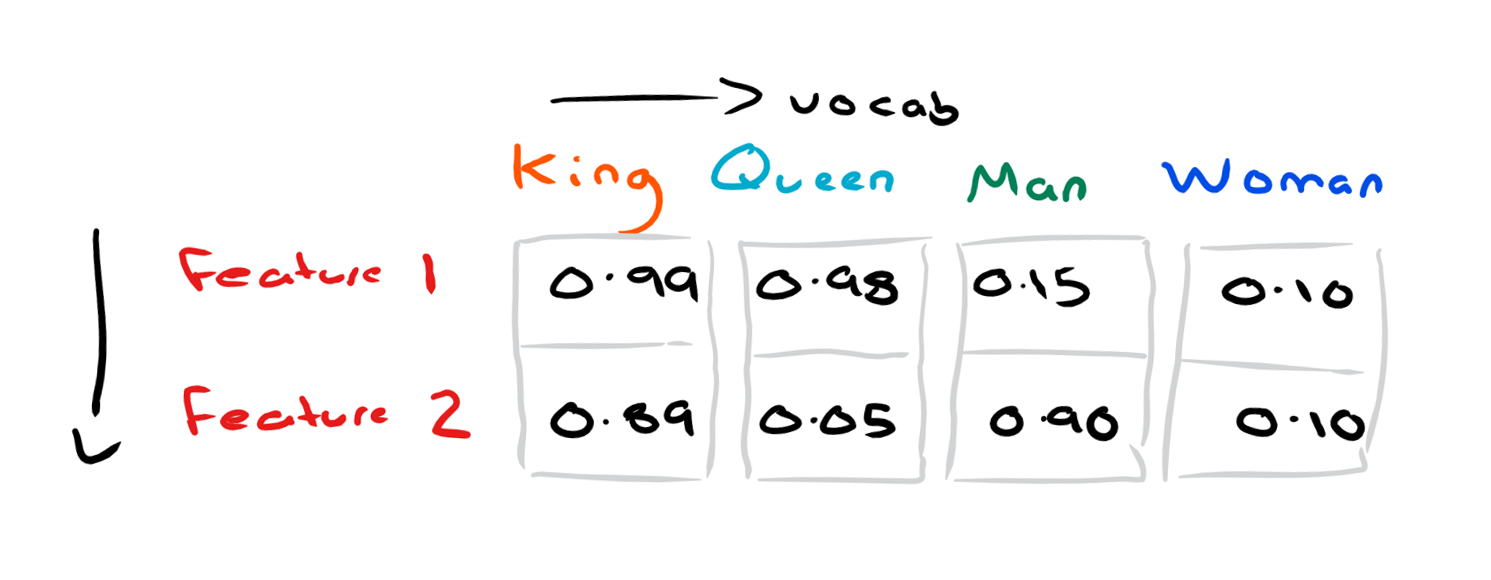 vocab
King Queen Man Woman
Feature 1 0.99 0.98 0.15 0.10
Feature 2 0.89 0.05 0.90 0.10